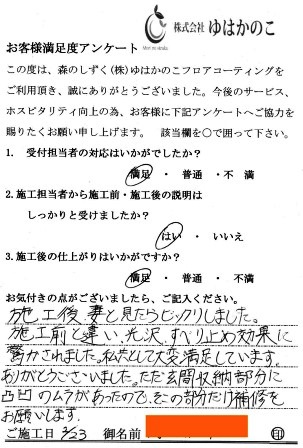 株式会社 ゆはかのこ
Mori no shizuku
お客様満足度アンケート
この度は、森のしずく(株)ゆはかのこフロアコーティングを
ご利用頂き、誠にありがとうございました。今後のサービス、
ホスピタリティ向上の為、お客様に下記アンケートへご協力を
賜りたくお願い申し上げます。 該当欄を○で囲って下さい。
1. 受付担当者の対応はいかがでしたか?
満足 ・ 普通 ・ 不満
2.施工担当者から施工前・施工後の説明は
しっかりと受けましたか?
はい ・ いいえ
3.施工後の仕上がりはいかがですか?
満足 ・ 普通 ・ 不満
お気付きの点がございましたら、ご記入ください。
施工後、妻と見たらビックリしました。
施工前と違い、光沢、すべり止め効果に
驚かされました。私たちとして大変満足しています。
ありがとうございました。ただ玄関収納部分に
凸凹のムラがあったので、その部分だけ補修を
お願いします。
ご施工日 2/23 御名前 印